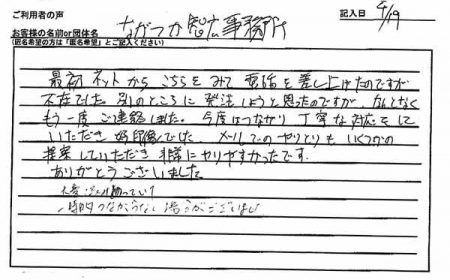 ご利用者の声
記入日 4/19
お客様の名前or団体名
(匿名希望の方は「匿名希望」とご記入ください)
ながつか智広事務所
最初ネットからこちらをみて電話を差し上げたのですが
不在でした。別のところに発注しようと思ったのですが、なんとなく
もう一度ご連絡しました。今度はつながり丁寧な対応をして
いただき好印象でした。メールでのやりとりもいくつかの
提案していただき非常にやりやすかったです。
ありがとうございました